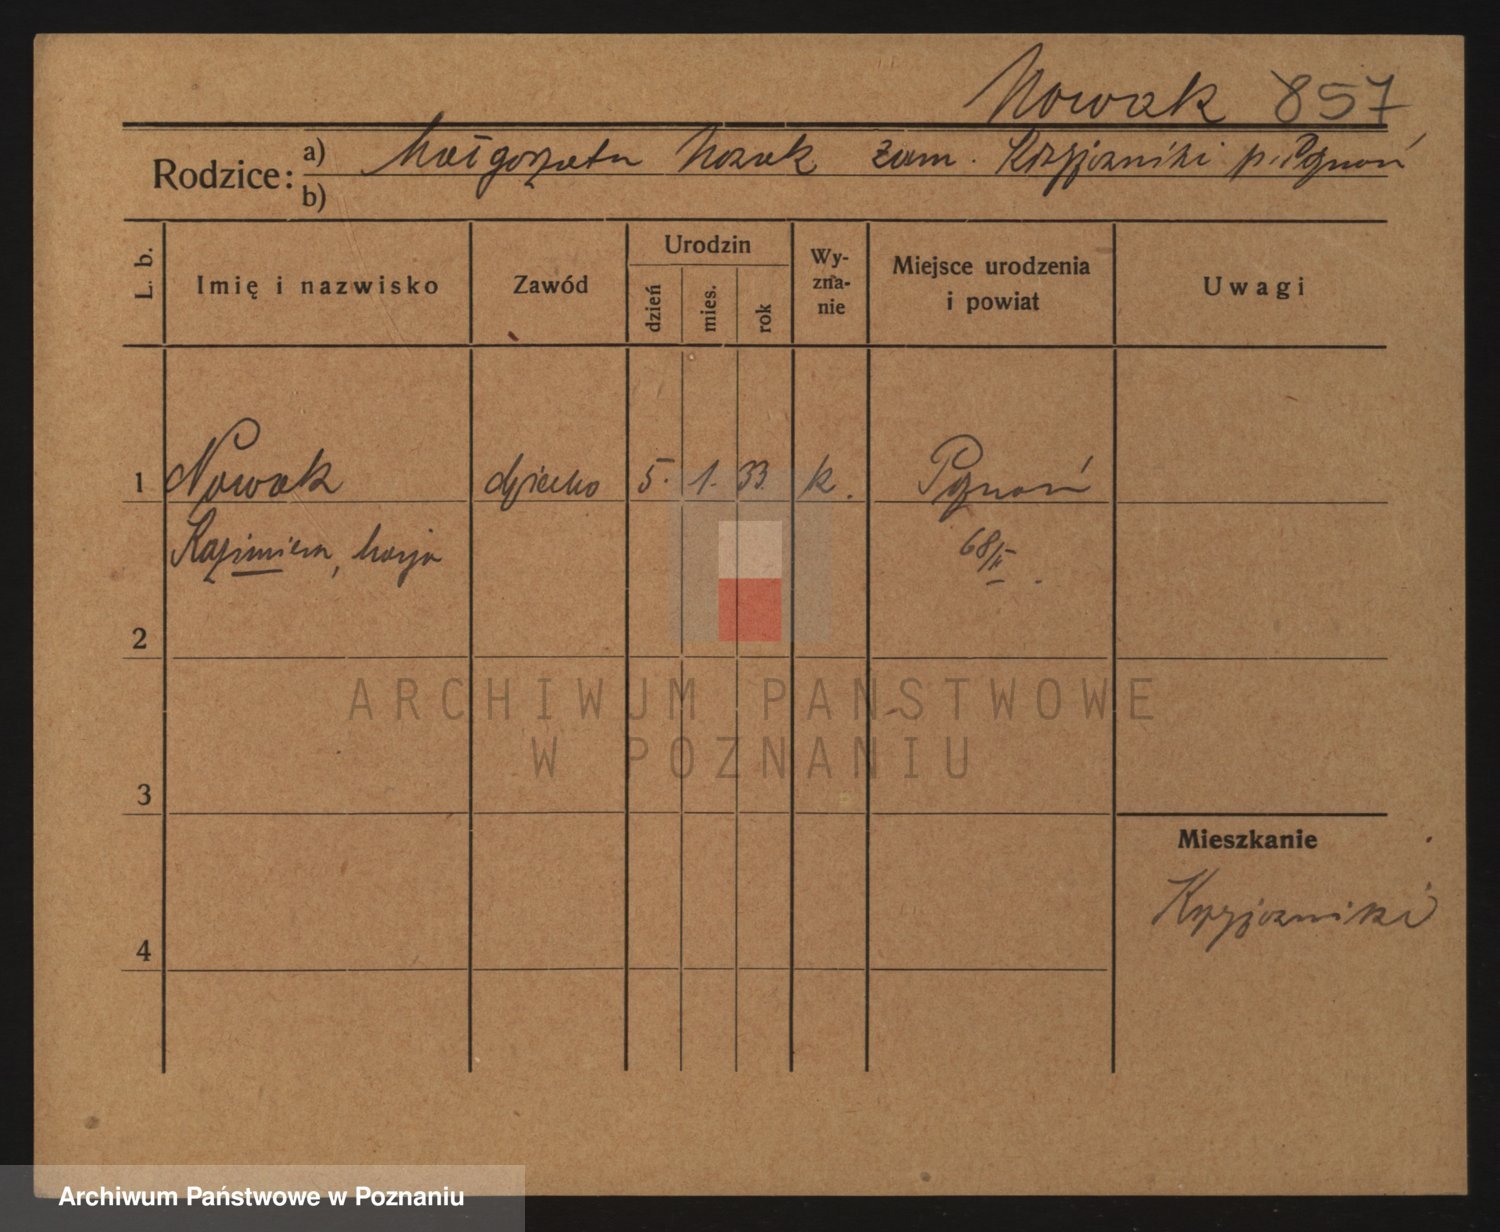 Nowak 857
Rodzice: a) Małgorzata Nowak zam. Krzyżowniki p. Poznań
b)
L. b. Imię i nazwisko Zawód Urodzin dzień mies. rok Wy-zna-nie Miejsce urodzenia i powiat Uwagi
1 Nowak dziecko 5. 1. 33. k. Poznań
Kazimiera, Marja 68/II.
2
ARCHIWUM PAŃSTWOWE
W POZNANIU
3
Mieszkanie
Krzyżowniki
4
Archiwum Państwowe w Poznaniu